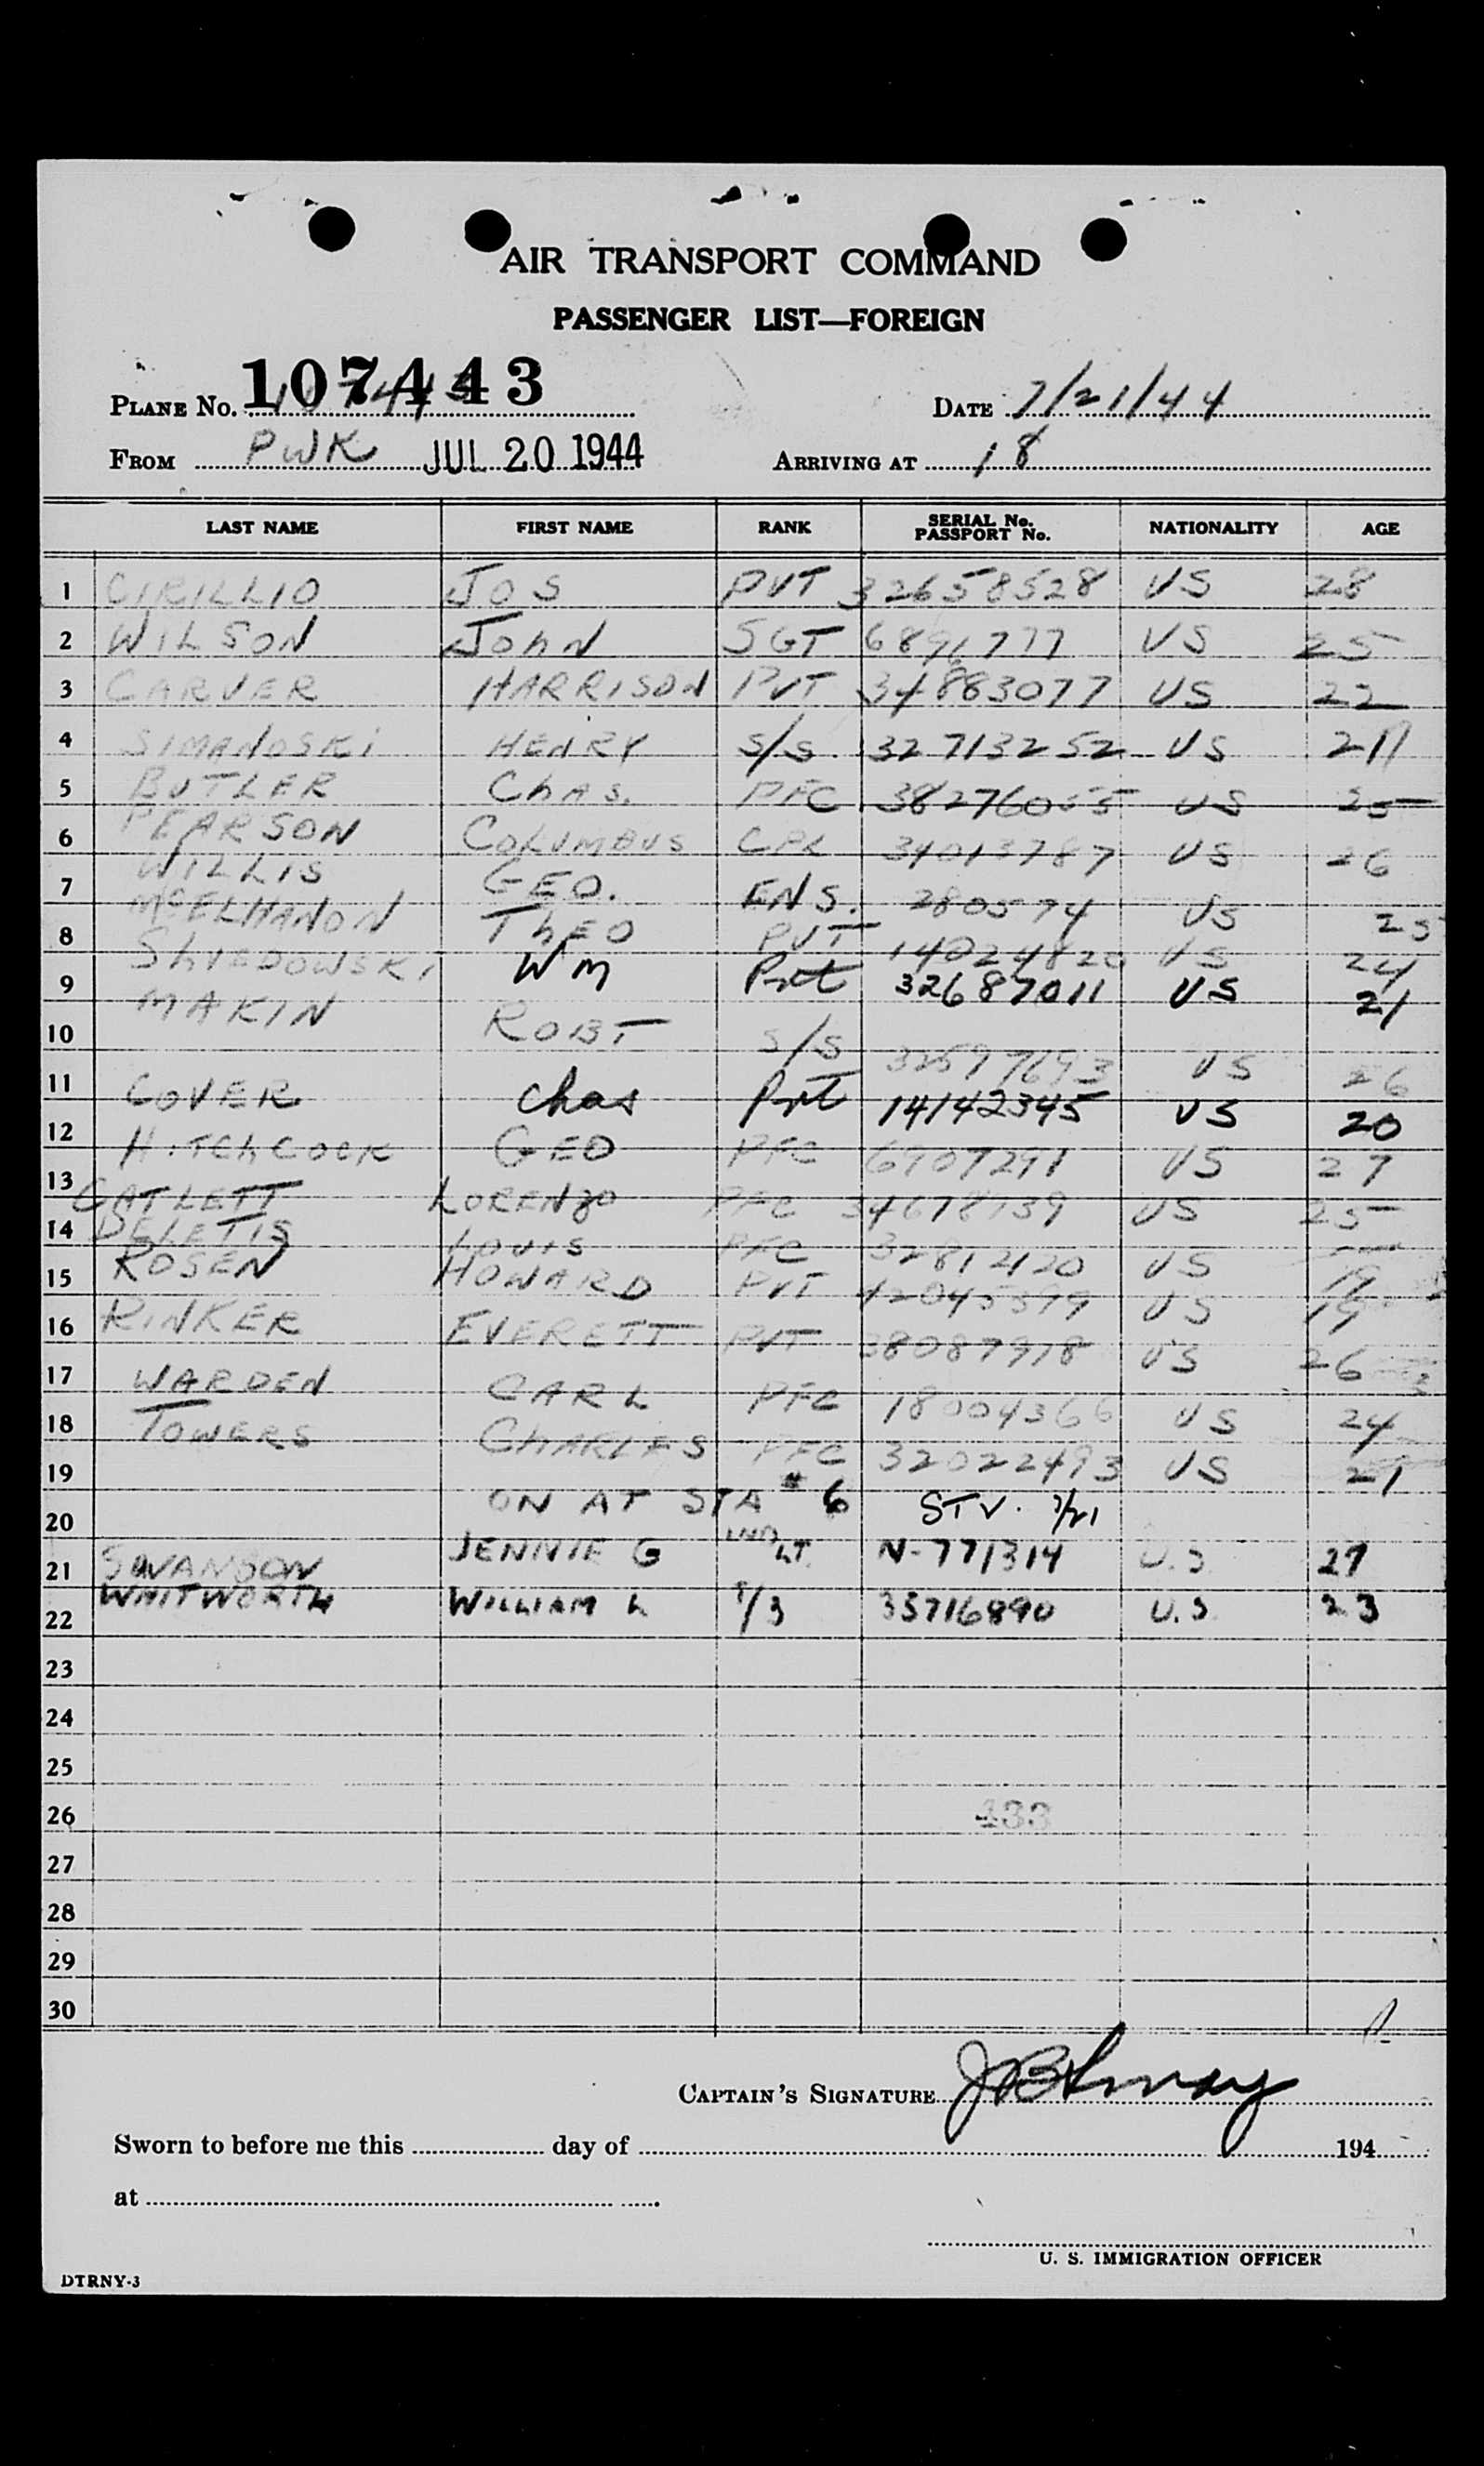 AIR TRANSPORT COMMAND
PASSENGER LIST—FOREIGN
PLANE No. 107443 DATE 7/21/44
FROM PWK JUL 20 1944 ARRIVING AT 18
LAST NAME FIRST NAME RANK SERIAL No. PASSPORT No. NATIONALITY AGE
1 CIRILLIO JOS PVT 32658528 US 28
2 WILSON JOHN SGT 6896777 US 25
3 CARVER HARRISON PVT 34883077 US 22
4 SIMANOSKI HENRY S/S 32713252 US 21
5 BUTLER CHAS. PFC 38276055 US 25
6 PEARSON COLUMBUS CPL 34013787 US 26
7 WILLIS GEO. ENS. 280574 US 25
8 McELHANON THEO PVT 14024820 US 24
9 SHIEDOWSKI WM Pvt 32687011 US 21
10 MAKIN ROBT S/S 32597693 US 26
11 COVER Chas Pvt 14142345 US 20
12 HITCHCOCK GEO PFC 6907291 US 27
13 CATLETT LORENZO PFC 34678739 US 25
14 DELETIS LOUIS PFC 32812120 US 19
15 ROSEN HOWARD PVT 42045399 US 19
16 RINKER EVERETT PVT 38087978 US 26
17 WARDEN CARL PFC 18004366 US 24
18 TOWERS CHARLES PFC 32022493 US 21
19
20 ON AT STA # 6 STV. 7/21
21 SWANSON JENNIE G 2ND LT. N-771314 U.S. 27
22 WHITWORTH WILLIAM L T/3 35716890 U.S. 23
23
24
25
26 433
27
28
29
30
CAPTAIN'S SIGNATURE
Sworn to before me this day of 194
at
U. S. IMMIGRATION OFFICER
DTRNY-3